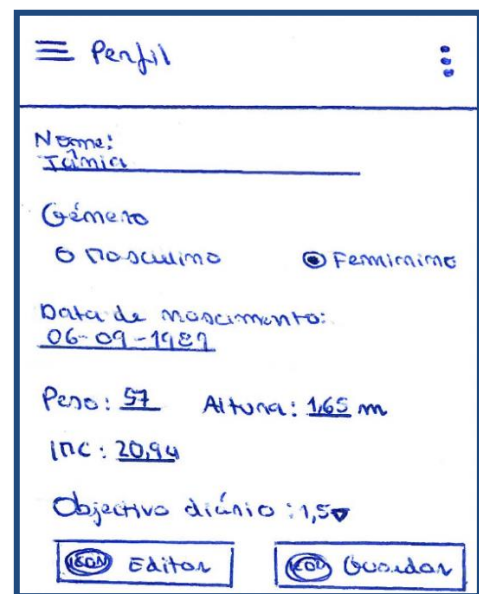 Perfil
Nome:
Tânia
Género
Masculino Feminino
Data de nascimento:
06-09-1989
Peso: 57 Altura: 1,65 m
IMC: 20,94
Objectivo diário: 1,5
ICON Editar ICON Guardar